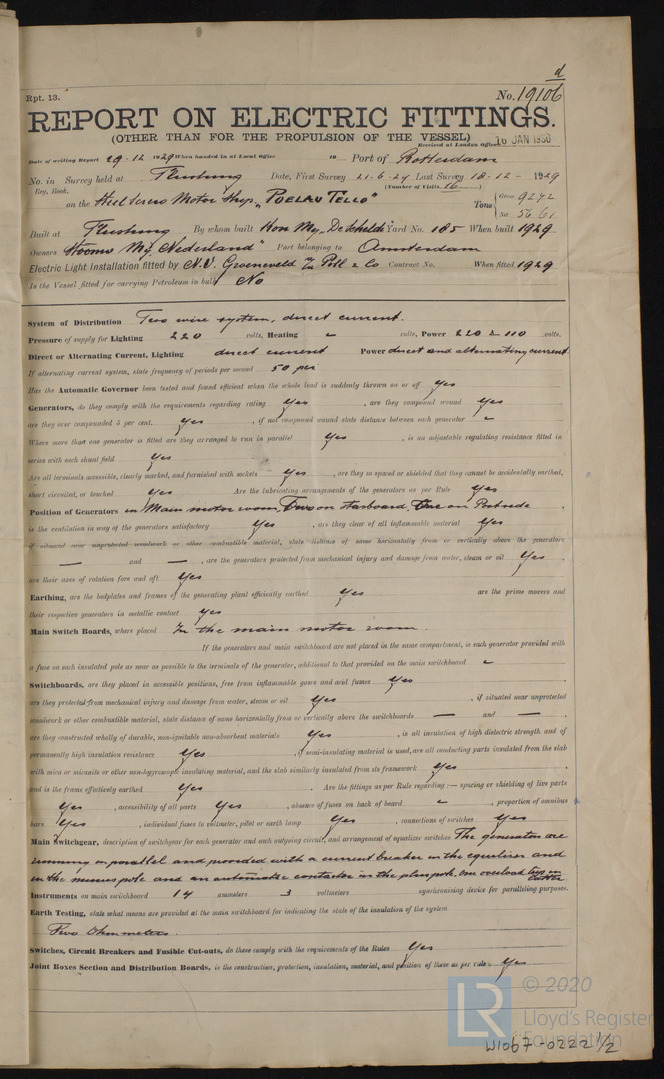 d
Rpt. 13.
No. 19106
REPORT ON ELECTRIC FITTINGS.
(OTHER THAN FOR THE PROPULSION OF THE VESSEL)
Received at London Office 16 JAN 1930
Date of writing Report 29-12 1929 When handed in at Local Office 19 Port of Rotterdam
No. in Survey held at Flushing Date, First Survey 21-6-29 Last Survey 18-12-1929
Reg. Book. (Number of Visits 16)
on the Steel screw Motor Ship "POELAU TELLO" Tons Gross 9272
Net 5661
Built at Flushing By whom built Kon My. "De Schelde" Yard No. 185 When built 1929
Owners Stoomv My. Nederland" Port belonging to Amsterdam
Electric Light Installation fitted by N.V. Groeneveld Poll & Co Contract No. When fitted 1929
Is the Vessel fitted for carrying Petroleum in bulk No
System of Distribution Two wire system, direct current.
Pressure of supply for Lighting 220 volts, Heating - volts, Power 220 & 110 volts.
Direct or Alternating Current, Lighting direct current Power direct and alternating current
If alternating current system, state frequency of periods per second 50 per
Has the Automatic Governor been tested and found efficient when the whole load is suddenly thrown on or off Yes
Generators, do they comply with the requirements regarding rating Yes, are they compound wound Yes
are they over compounded 5 per cent. Yes, if not compound wound state distance between each generator -
Where more than one generator is fitted are they arranged to run in parallel Yes, is an adjustable regulating resistance fitted in
series with each shunt field Yes
Are all terminals accessible, clearly marked, and furnished with sockets Yes, are they so spaced or shielded that they cannot be accidentally earthed,
short circuited, or touched Yes Are the lubricating arrangements of the generators as per Rule Yes
Position of Generators in Main motor room, Two on Starboard, One on Portside.
is the ventilation in way of the generators satisfactory Yes, are they clear of all inflammable material Yes
if situated near unprotected woodwork or other combustible material, state distance of same horizontally from or vertically above the generators
— and —, are the generators protected from mechanical injury and damage from water, steam or oil Yes.
are their axes of rotation fore and aft Yes
Earthing, are the bedplates and frames of the generating plant efficiently earthed Yes are the prime movers and
their respective generators in metallic contact Yes
Main Switch Boards, where placed In the main motor room.
If the generators and main switchboard are not placed in the same compartment, is each generator provided with
a fuse on each insulated pole as near as possible to the terminals of the generator, additional to that provided on the main switchboard -
Switchboards, are they placed in accessible positions, free from inflammable gases and acid fumes Yes
are they protected from mechanical injury and damage from water, steam or oil Yes, if situated near unprotected
woodwork or other combustible material, state distance of same horizontally from or vertically above the switchboards — and —,
are they constructed wholly of durable, non-ignitable non-absorbent materials Yes, is all insulation of high dielectric strength and of
permanently high insulation resistance Yes, if semi-insulating material is used, are all conducting parts insulated from the slab
with mica or micanite or other non-hygroscopic insulating material, and the slab similarly insulated from its framework Yes,
and is the frame effectively earthed Yes. Are the fittings as per Rule regarding:— spacing or shielding of live parts
Yes, accessibility of all parts Yes, absence of fuses on back of board -, proportion of omnibus
bars Yes, individual fuses to voltmeter, pilot or earth lamp Yes, connections of switches Yes
Main Switchgear, description of switchgear for each generator and each outgoing circuit, and arrangement of equalizer switches The generators are
running in parallel and provided with a current breaker in the equalizer and
in the minus pole and an automatic contactor in the plus pole. One overload trip in
Instruments on main switchboard 14 ammeters 3 voltmeters synchronising device for paralleling purposes.
Earth Testing, state what means are provided at the main switchboard for indicating the state of the insulation of the system
Two Ohmmeters.
Switches, Circuit Breakers and Fusible Cut-outs, do these comply with the requirements of the Rules Yes
Joint Boxes Section and Distribution Boards, is the construction, protection, insulation, material, and position of these as per rule Yes
LR
© 2020
Lloyd's Register
Foundation
W1067-0222 1/2